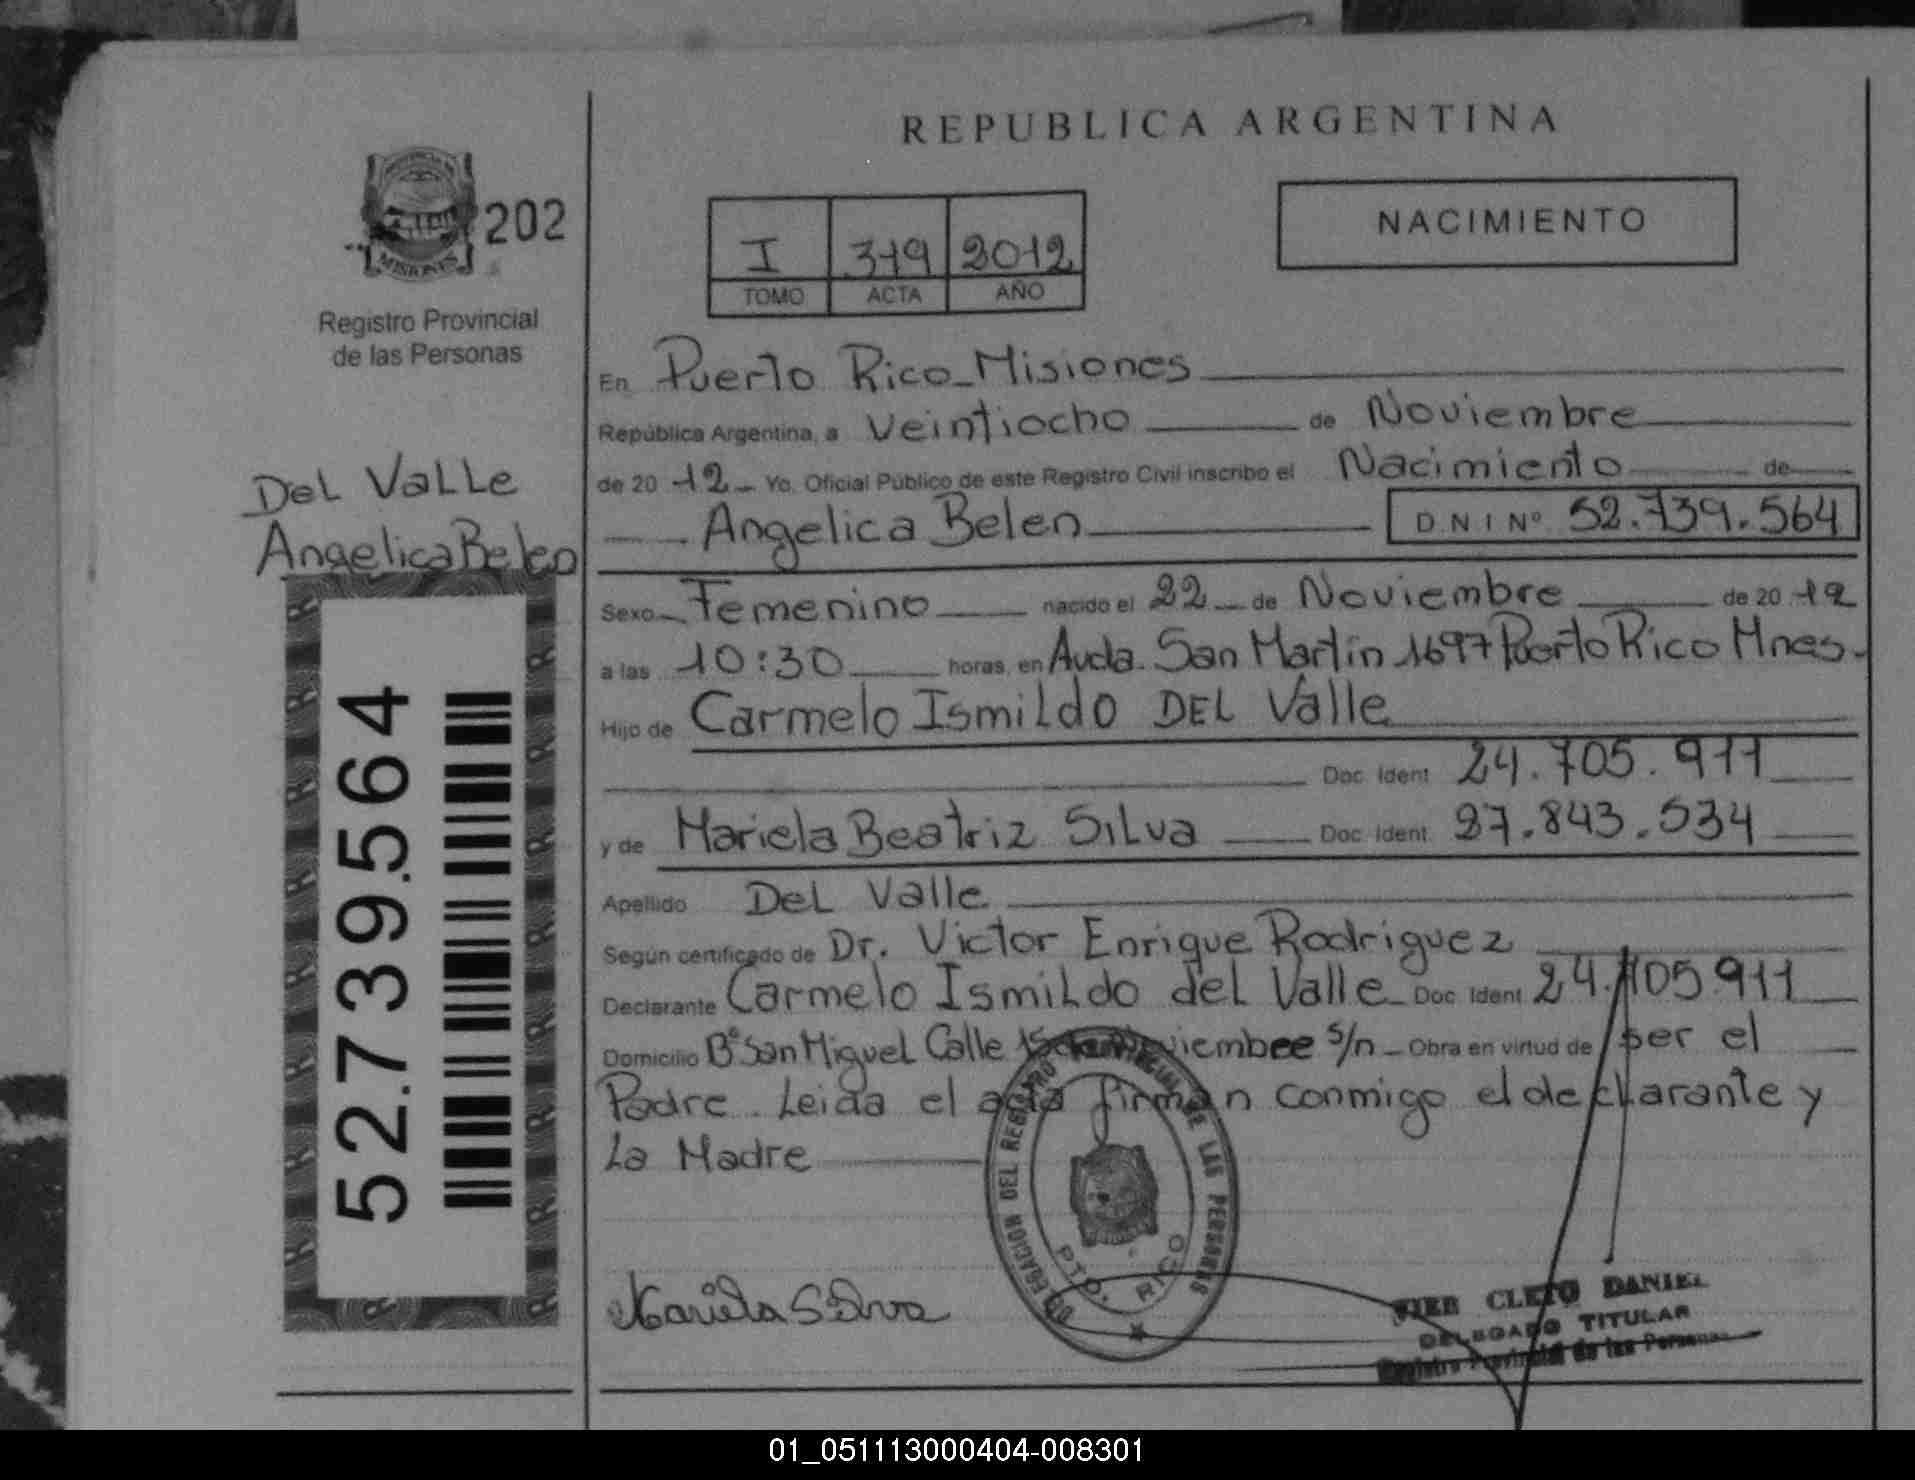 REPUBLICA ARGENTINA
PROVINCIA DE
MISIONES
202
Registro Provincial
de las Personas
NACIMIENTO
I 319 2012
TOMO ACTA AÑO
Del Valle
Angelica Belen
52.739.564
En Puerto Rico - Misiones
República Argentina, a Veintiocho de Noviembre
de 20 12 Yo, Oficial Público de este Registro Civil inscribo el Nacimiento de
Angelica Belen D N I Nº 52.739.564
Sexo Femenino nacido el 22 de Noviembre de 20 12
a las 10:30 horas, en Avda. San Martin 1697 Puerto Rico Mnes.
Hijo de Carmelo Ismildo DEL Valle
Doc. Ident. 24.705.911
y de Mariela Beatriz Silva Doc. Ident. 27.843.534
Apellido Del Valle
Según certificado de Dr. Victor Enrique Rodriguez
Declarante Carmelo Ismildo del Valle Doc. Ident. 24.705.911
Domicilio Bº San Miguel Calle 15 de Noviembre s/n Obra en virtud de ser el
Padre. Leida el acta firman conmigo el declarante y
La Madre
DELEGACION DEL REGISTRO PROVINCIAL DE LAS PERSONAS
PTO. RICO
Mariela Silva
CLETO DANIEL
DELEGADO TITULAR
Registro Provincial de las Personas
01_051113000404-008301